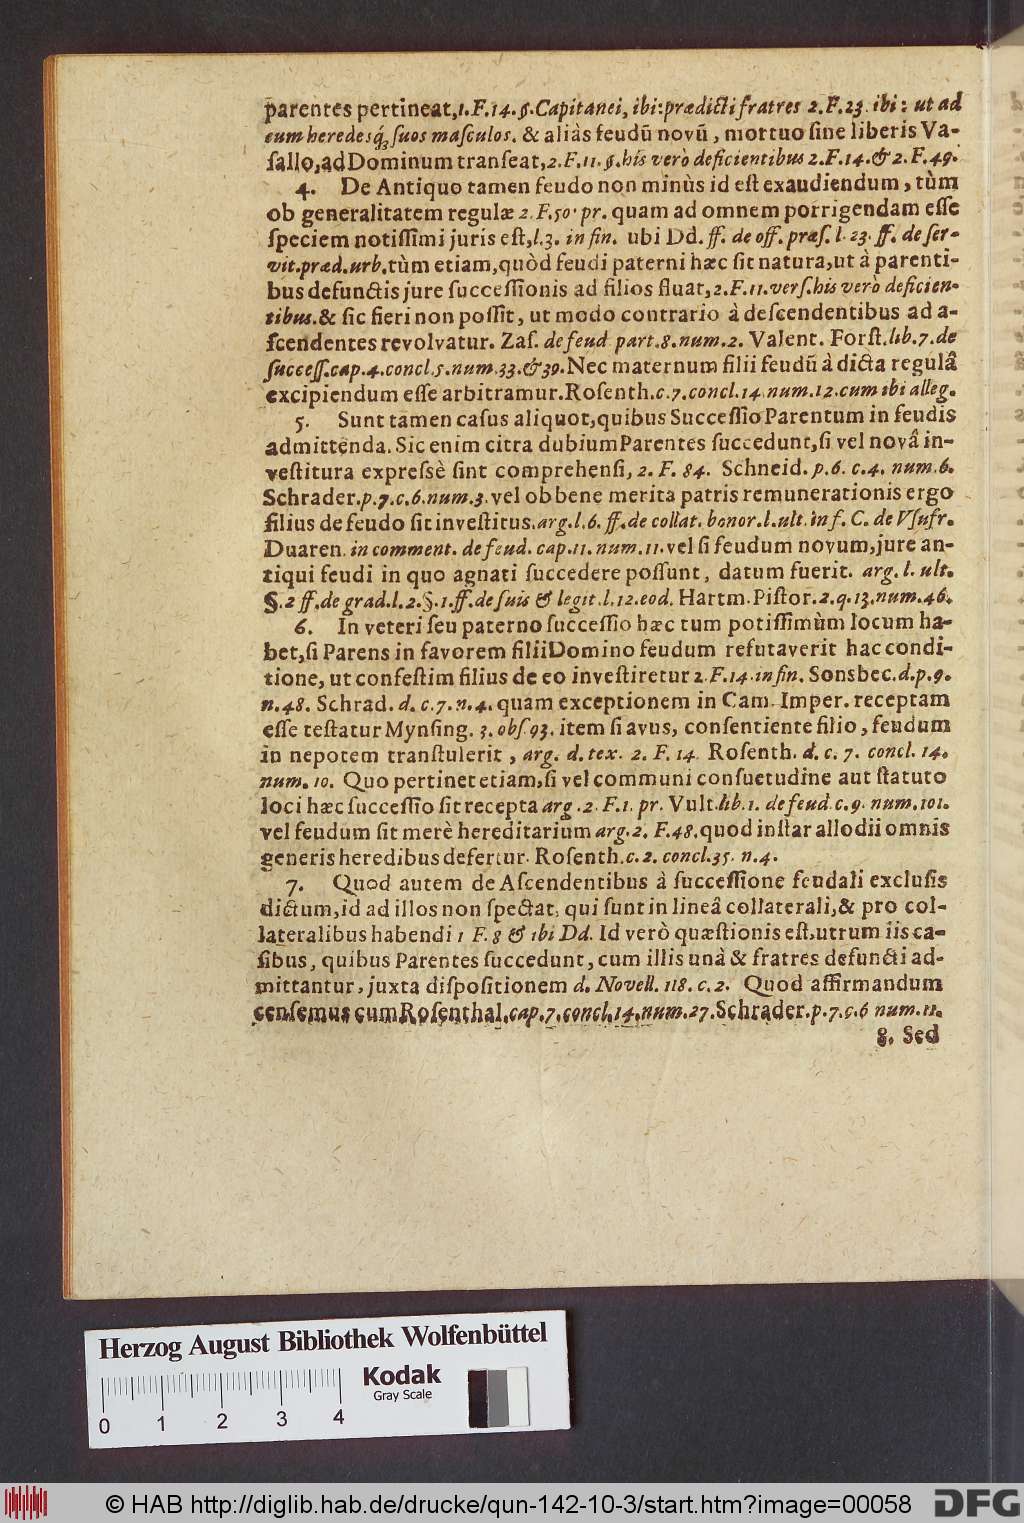 parentes pertineat,1.F.14.§.Capitanei, ibi:prædicti fratres 2.F.23. ibi: ut ad
eum heredesq́; ſuos maſculos. & aliàs feudū novū, mortuo ſine liberis Va-
ſallo, ad Dominum tranſeat, 2.F.11.§.his verò deficientibus 2.F.14.& 2.F.49.
4. De Antiquo tamen feudo non minùs id eſt exaudiendum, tùm
ob generalitatem regulæ 2.F.50. pr. quam ad omnem porrigendam eſſe
ſpeciem notiſſimi juris eſt, l.3. in fin. ubi Dd. ff. de off. præſ. l. 23. ff. de ſer-
vit.præd.urb. tùm etiam, quòd feudi paterni hæc ſit natura, ut à parenti-
bus defunctis jure ſucceſſionis ad filios fluat, 2.F.11.verſ.his verò deficien-
tibus. & ſic fieri non poſſit, ut modo contrario à deſcendentibus ad a-
ſcendentes revolvatur. Zaſ. de feud part.8.num.2. Valent. Forſt. lib.7.de
ſucceſſ.cap.4.concl.5.num.33.&39. Nec maternum filii feudū à dicta regulâ
excipiendum eſſe arbitramur. Roſenth.c.7.concl.14.num.12.cum ibi alleg.
5. Sunt tamen caſus aliquot, quibus Succeſſio Parentum in feudis
admittenda. Sic enim citra dubium Parentes ſuccedunt, ſi vel novâ in-
veſtitura expreſsè ſint comprehenſi, 2. F. 84. Schneid. p.6. c.4. num.6.
Schrader.p.7.c.6.num.3. vel ob bene merita patris remunerationis ergo
filius de feudo ſit inveſtitus. arg.l.6. ff.de collat. bonor.l.ult.in f. C. de Vſufr.
Duaren. in comment. de feud. cap.11. num.11. vel ſi feudum novum, jure an-
tiqui feudi in quo agnati ſuccedere poſſunt, datum fuerit. arg. l. ult.
§.2 ff.de grad.l.2.§.1.ff.de ſuis & legit.l.12.eod. Hartm. Piſtor.2.q.13.num.46.
6. In veteri ſeu paterno ſucceſſio hæc tum potiſſimùm locum ha-
bet, ſi Parens in favorem filii Domino feudum refutaverit hac condi-
tione, ut confeſtim filius de eo inveſtiretur 2.F.14.in fin. Sonsbec.d.p.9.
n.48. Schrad. d. c.7. n.4. quam exceptionem in Cam. Imper. receptam
eſſe teſtatur Mynſing. 3. obſ.93. item ſi avus, conſentiente filio, feudum
in nepotem tranſtulerit, arg. d. tex. 2. F. 14. Roſenth. d. c. 7. concl. 14.
num. 10. Quo pertinet etiam, ſi vel communi conſuetudine aut ſtatuto
loci hæc ſucceſſio ſit recepta arg. 2. F.1. pr. Vult.lib.1. de feud.c.9. num.101.
vel feudum ſit merè hereditarium arg.2. F.48. quod inſtar allodii omnis
generis heredibus defertur. Roſenth.c.2. concl.35. n.4.
7. Quod autem de Aſcendentibus à ſucceſſione feudali excluſis
dictum, id ad illos non ſpectat, qui ſunt in lineâ collaterali, & pro col-
lateralibus habendi 1 F.8 & ibi Dd. Id verò quæſtionis eſt, utrum iis ca-
ſibus, quibus Parentes ſuccedunt, cum illis unà & fratres defuncti ad-
mittantur, juxta diſpoſitionem d. Novell. 118. c.2. Quod affirmandum
cenſemus cum Roſenthal.cap.7.concl.14.num.27. Schrader.p.7.c.6 num.11.
8. Sed
Herzog August Bibliothek Wolfenbüttel
Kodak
Gray Scale
0 1 2 3 4
© HAB http://diglib.hab.de/drucke/qun-142-10-3/start.htm?image=00058
DFG